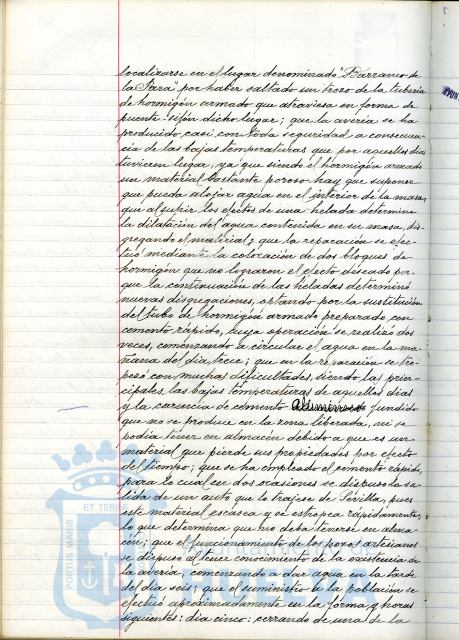 localizarse en el lugar denominado "Barranco de
la Jara" por haber saltado un trozo de la tubería
de hormigón armado que atraviesa en forma de
puente-sifón dicho lugar; que la avería se ha
producido, casi con toda seguridad a consecuen-
cia de las bajas temperaturas que por aquellos días
tuvieron lugar, ya que siendo el hormigón armado
un material bastante poroso hay que suponer
que pueda alojar agua en el interior de la masa,
que al sufrir los efectos de una helada determine
la dilatación del agua contenida en su masa, dis-
gregando el material; que la reparación se efec-
tuó mediante la colocación de dos bloques de
hormigón que no lograron el efecto deseado por-
que la continuación de las heladas determinó
nuevas disgregaciones, optando por la sustitución
del tubo de hormigón armado preparado con
cemento rápido, cuya operación se realizó dos
veces, comenzando a circular el agua en la ma-
ñana del día trece; que en la reparación se tro-
pezó con muchas dificultades, siendo las prin-
cipales, las bajas temperaturas de aquellos días
y la carencia de cemento fundido
que no se produce en la zona liberada, ni se
podía tener en almacén debido a que es un
material que pierde sus propiedades por efecto
del tiempo; que se ha empleado el cemento rápido,
para lo cual en dos ocasiones se dispuso la sa-
lida de un auto que lo trajese de Sevilla, pues
este material escasea y se estropea rápidamente,
lo que determina que no deba tenerse en alma-
cén; que el funcionamiento de los pozos artesianos
se dispuso al tener conocimiento de la existencia de
la avería, comenzando a dar agua en la tarde
del día seis; que el suministro a la población se
efectuó aproximadamente en la forma y horas
siguientes: día cinco: cerrando de una de la
PORTUS MARIS
ET TERRA